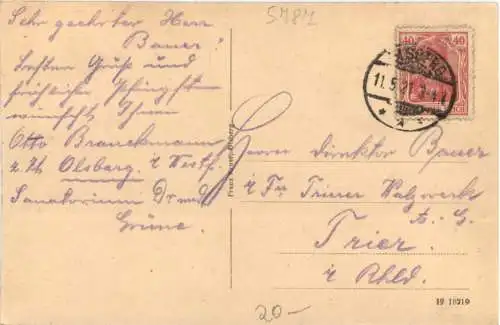 5787
Sehr geehrter Herr
Bauer!
Besten Gruß und
fröhliche Pfingst
wünscht Ihnen
Otto Brauckmann
z. Zt. Olsberg i Westf.
Sanatorium Dr med
Grüne.
40 40
11.5.21
Herrn Direktor Bauer
i Fa Trierer Walzwerk
A. G.
Trier
i Rhld.
Franz
19 18219
20-